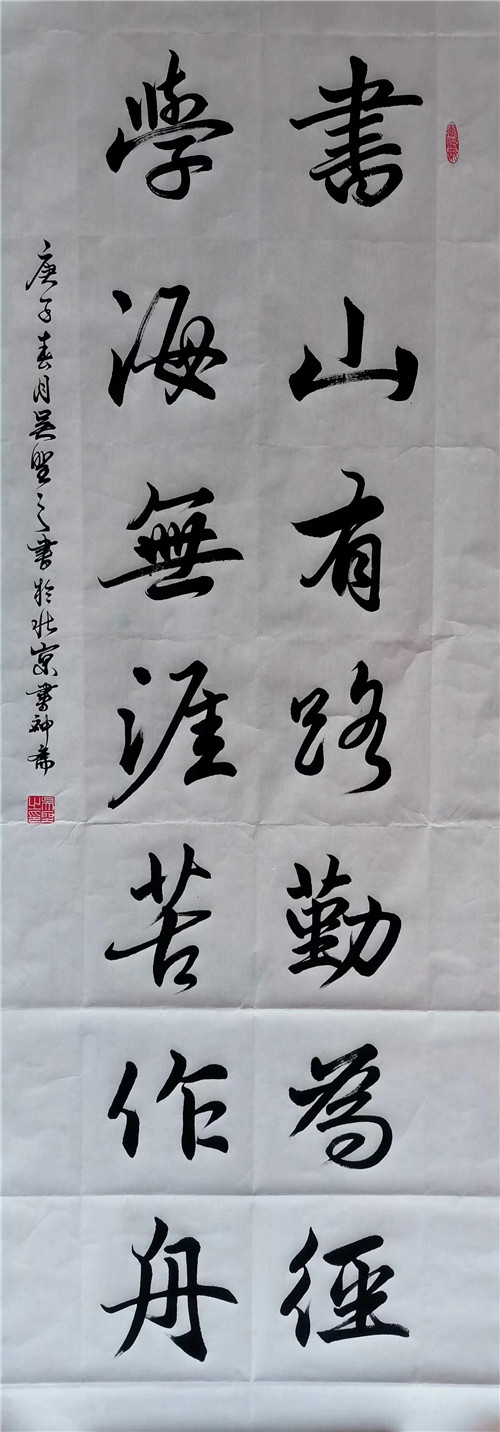 書山有路勤為徑
學海無涯苦作舟
庚子春月吳堅之書於北京墨神齋